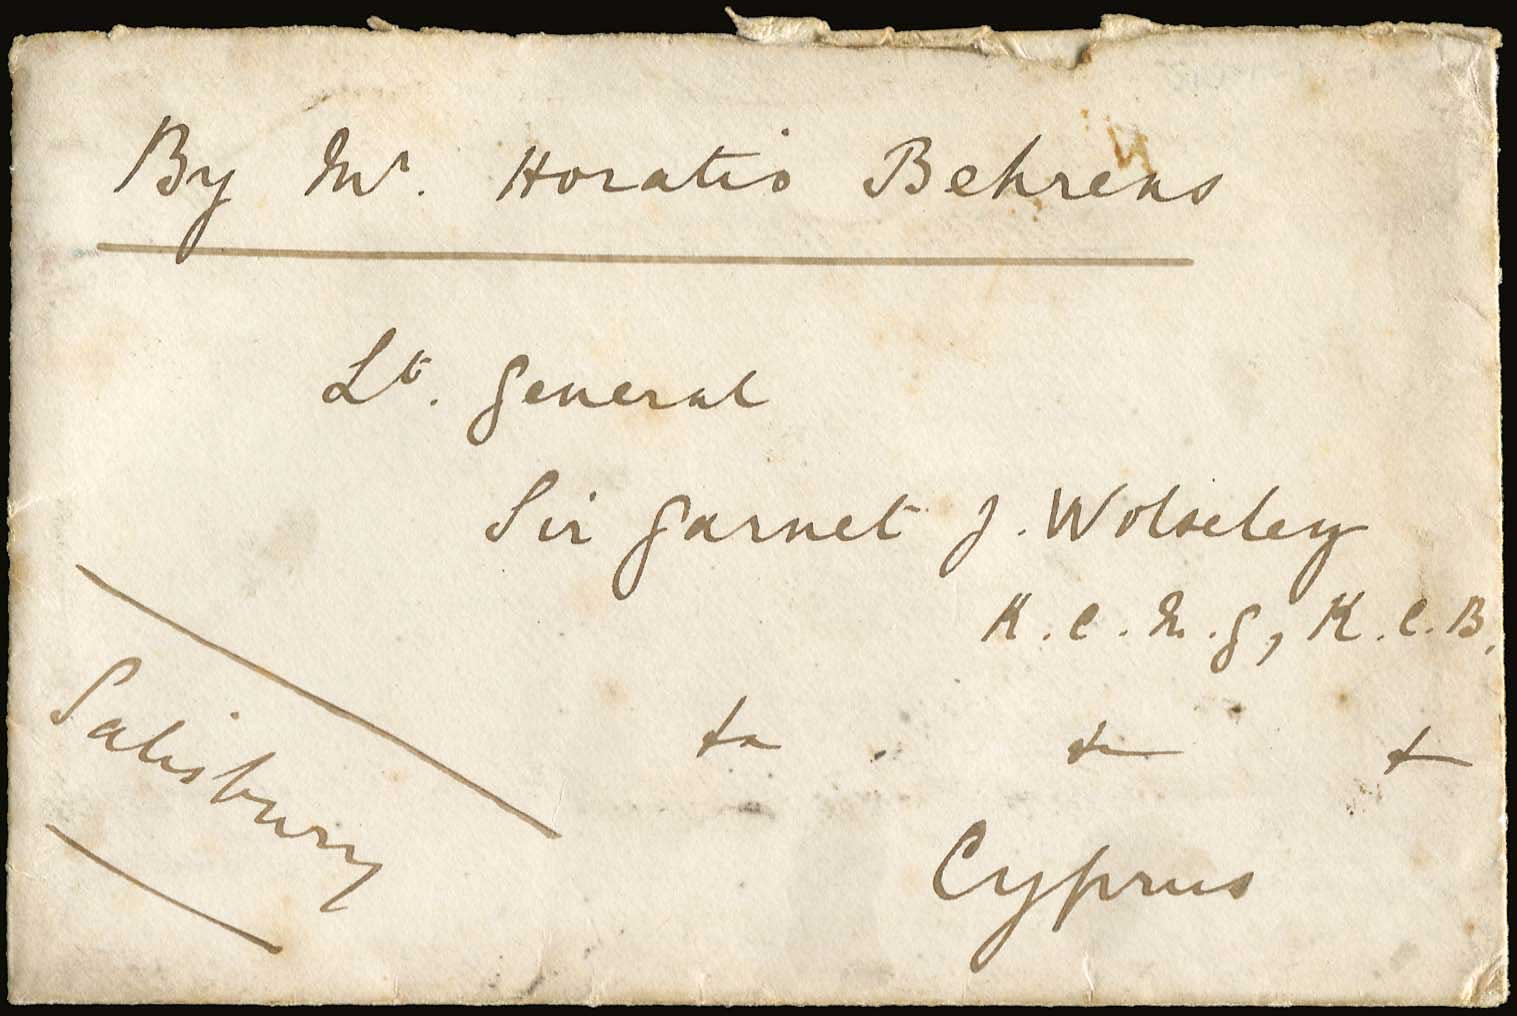 By Mr. Horatio Behrens
Lt. General
Sir Garnet J. Wolseley
K.C.M.G, K.C.B.
& & &
Cyprus
Salisbury